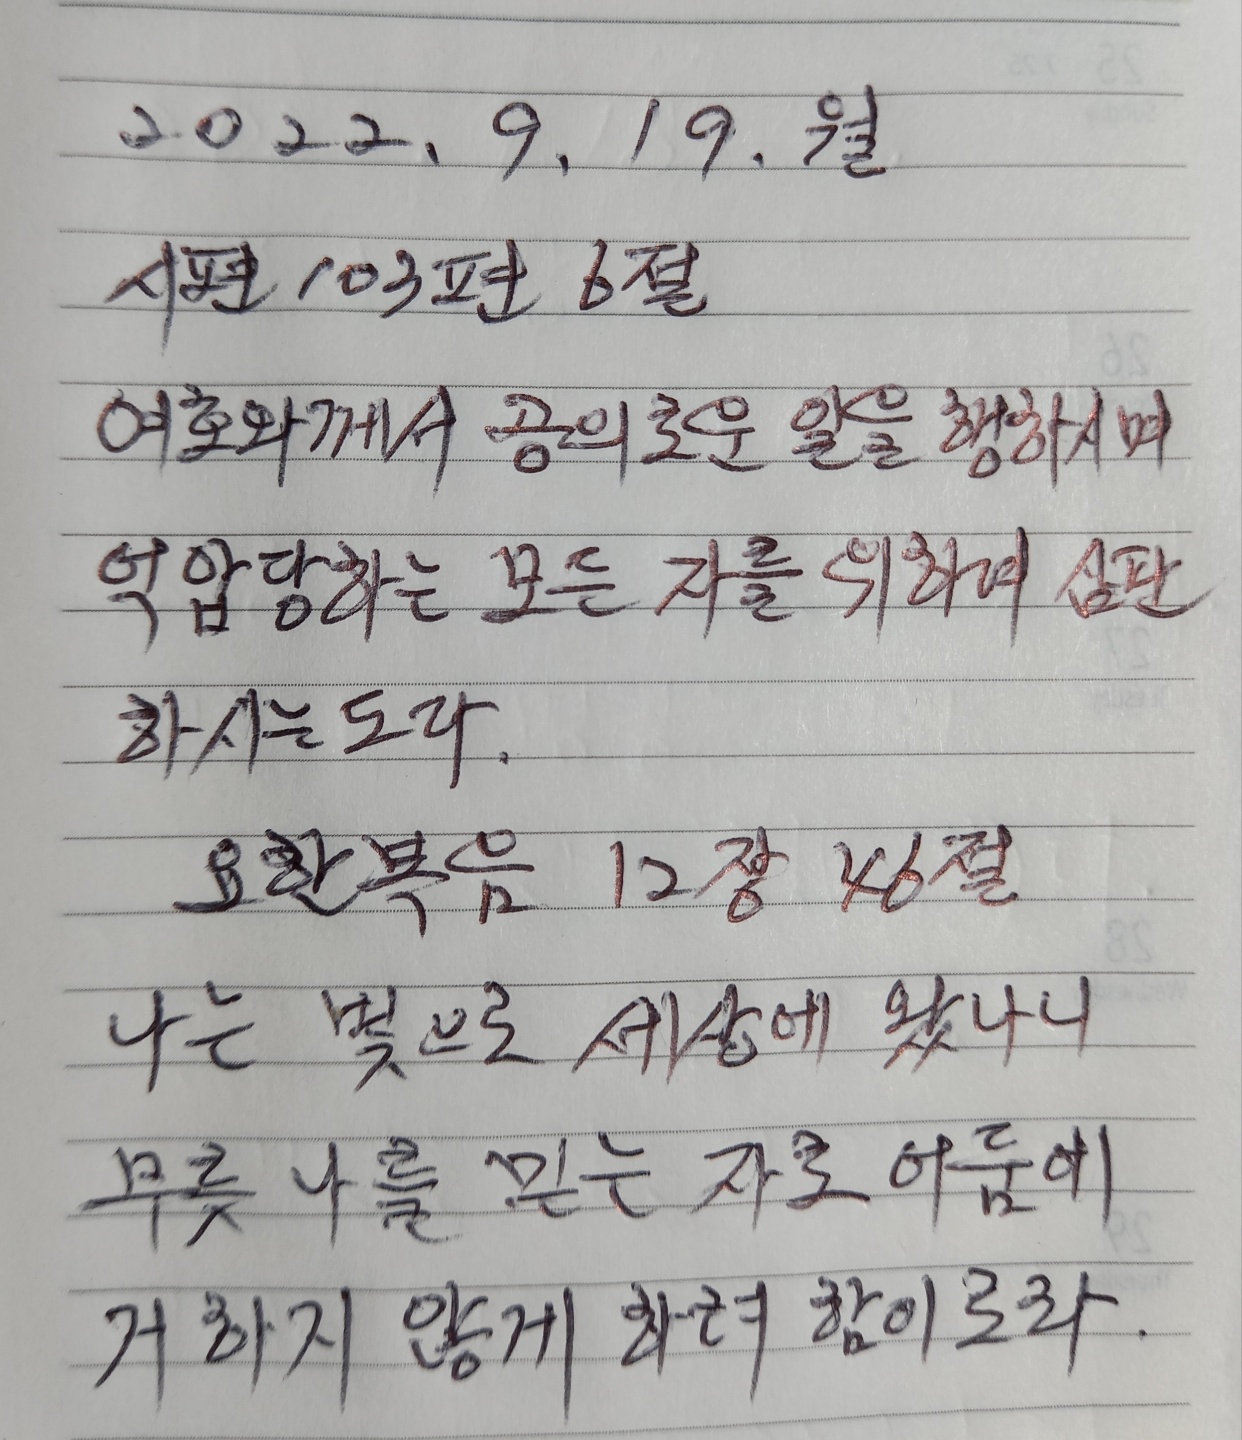 2022. 9. 19. 월
시편 103편 6절
여호와께서 공의로운 일을 행하시며
억압당하는 모든 자를 위하여 심판
하시는도다.
요한복음 12장 46절
나는 빛으로 세상에 왔나니
무릇 나를 믿는 자로 어둠에
거하지 않게 하려 함이로라.